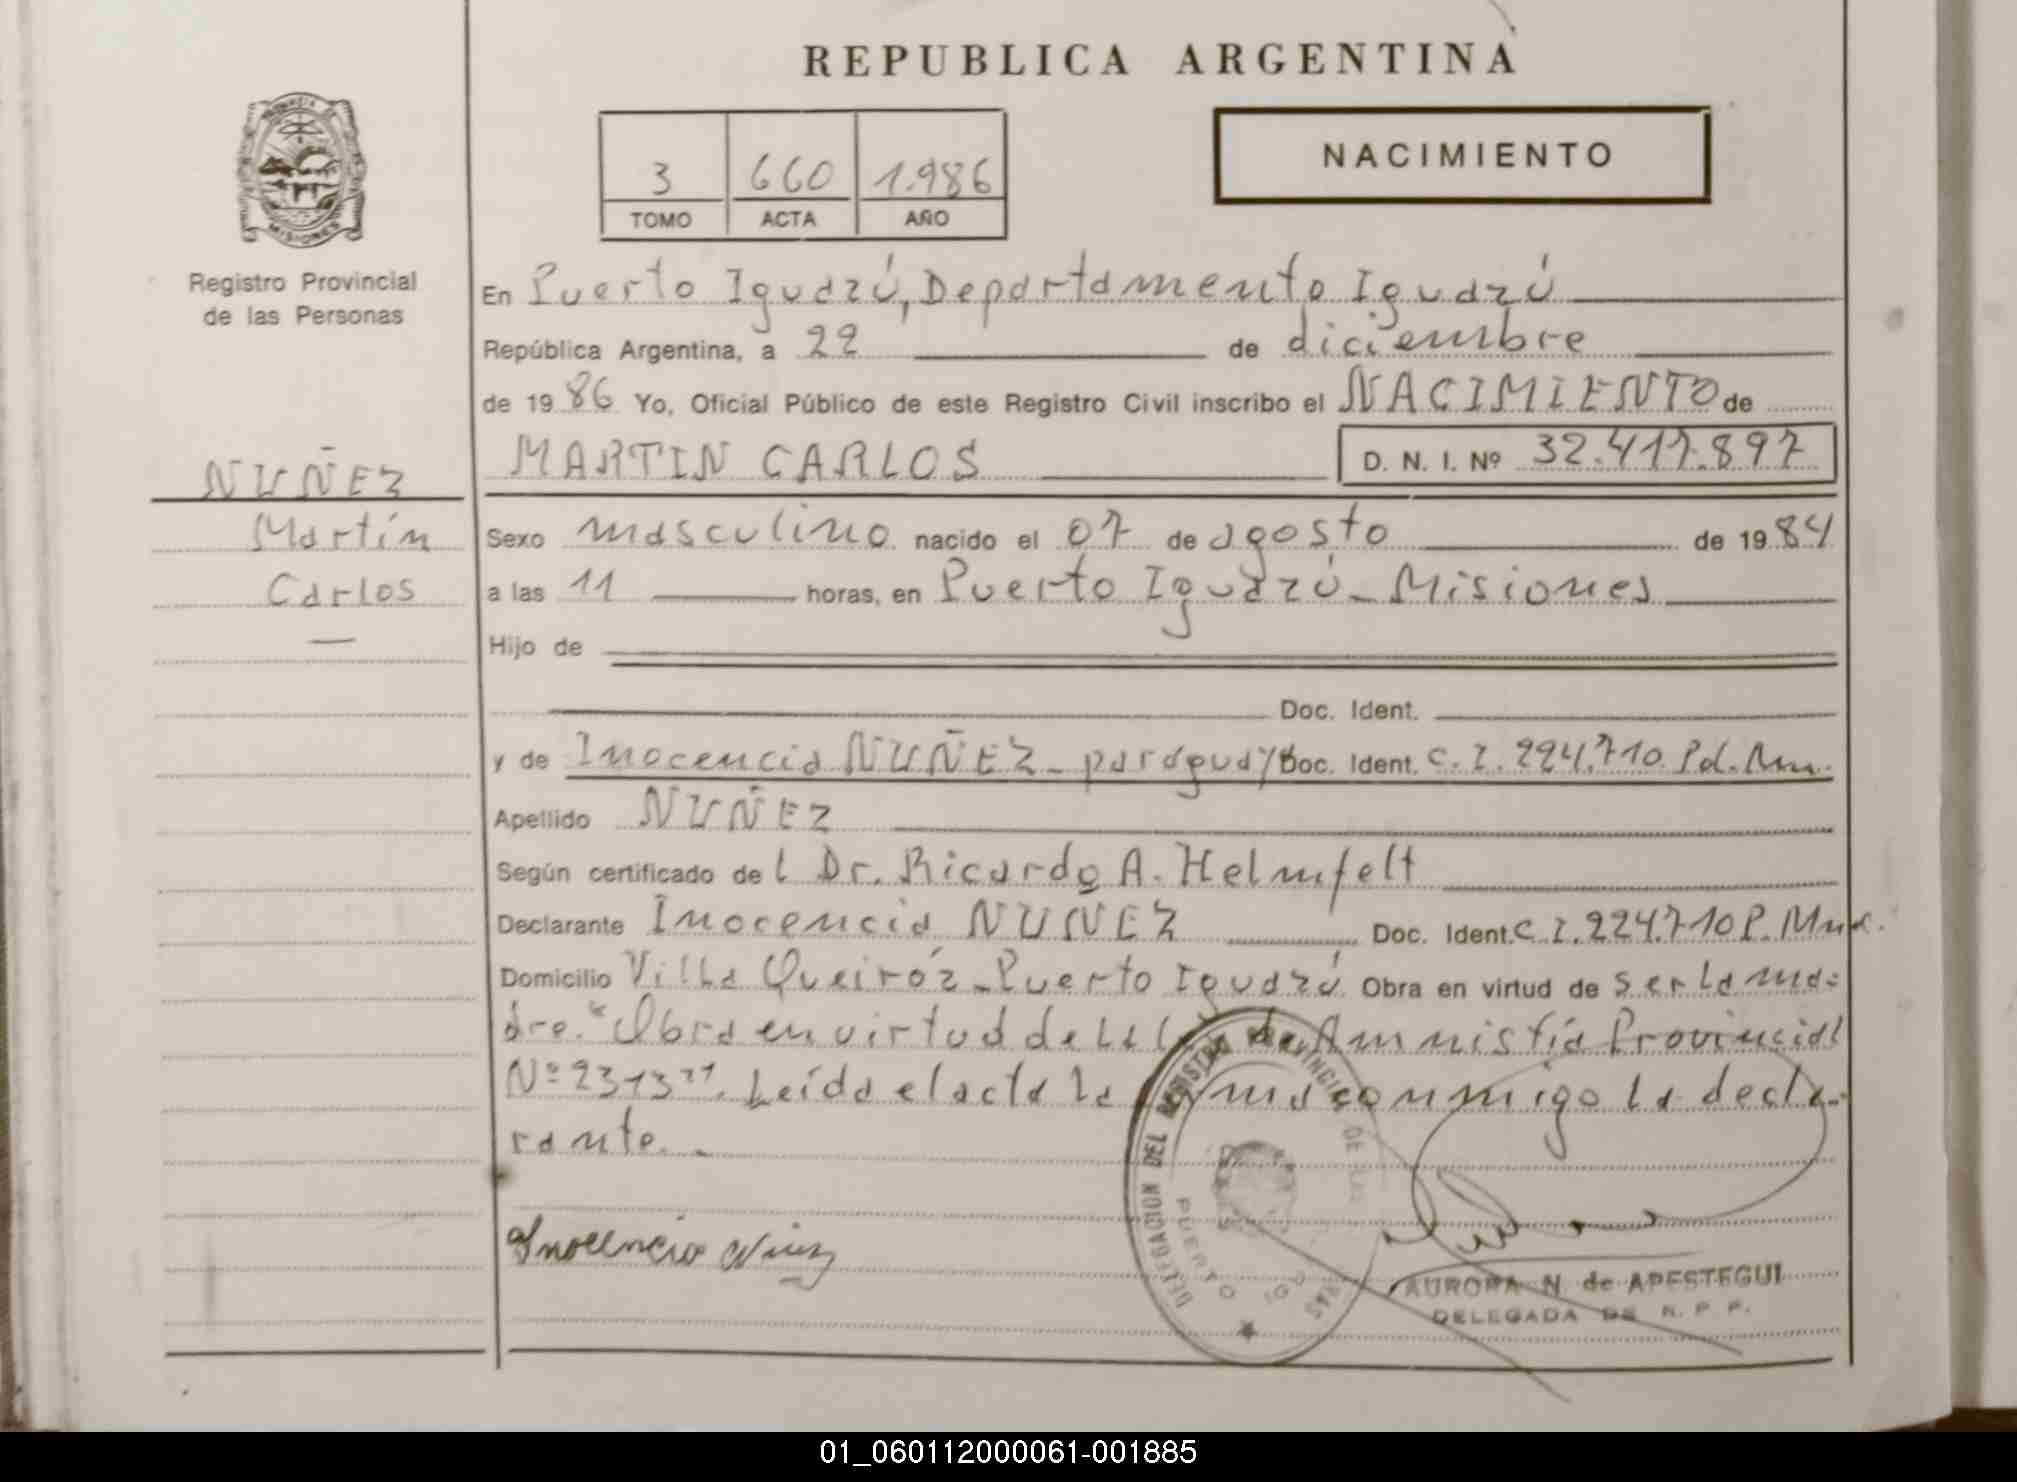 REPUBLICA ARGENTINA
3 660 1.986
TOMO ACTA AÑO
NACIMIENTO
MISIONES
Registro Provincial
de las Personas
NUÑEZ
Martín
Carlos
En Puerto Iguazú, Departamento Iguazú
República Argentina, a 22 de diciembre
de 1986 Yo, Oficial Público de este Registro Civil inscribo el NACIMIENTO de
MARTIN CARLOS D. N. I. Nº 32.417.897
Sexo masculino nacido el 07 de agosto de 1984
a las 11 horas, en Puerto Iguazú - Misiones
Hijo de
Doc. Ident.
y de Inocencia NUÑEZ - paraguay Doc. Ident. C.I. 224.710 Pol.
Apellido NUÑEZ
Según certificado del Dr. Ricardo A. Helmfelt
Declarante Inocencia NUÑEZ Doc. Ident. C.I. 224.710 P.
Domicilio Villa Queiróz - Puerto Iguazú Obra en virtud de ser la ma=
dre. "Obra en virtud de la de Amnistía Provincial
Nº 2313". Leída el acta la conmigo la decla-
rante. -
Inocencia Nuñez
DELEGACION DEL REGISTRO PROVINCIAL DE LAS
PUERTO
AURORA N. de APESTEGUI
DELEGADA DE R. P. P.
01_060112000061-001885